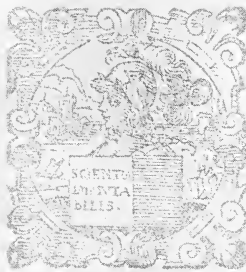 SCIENTI
IMMVTA
BILIS.